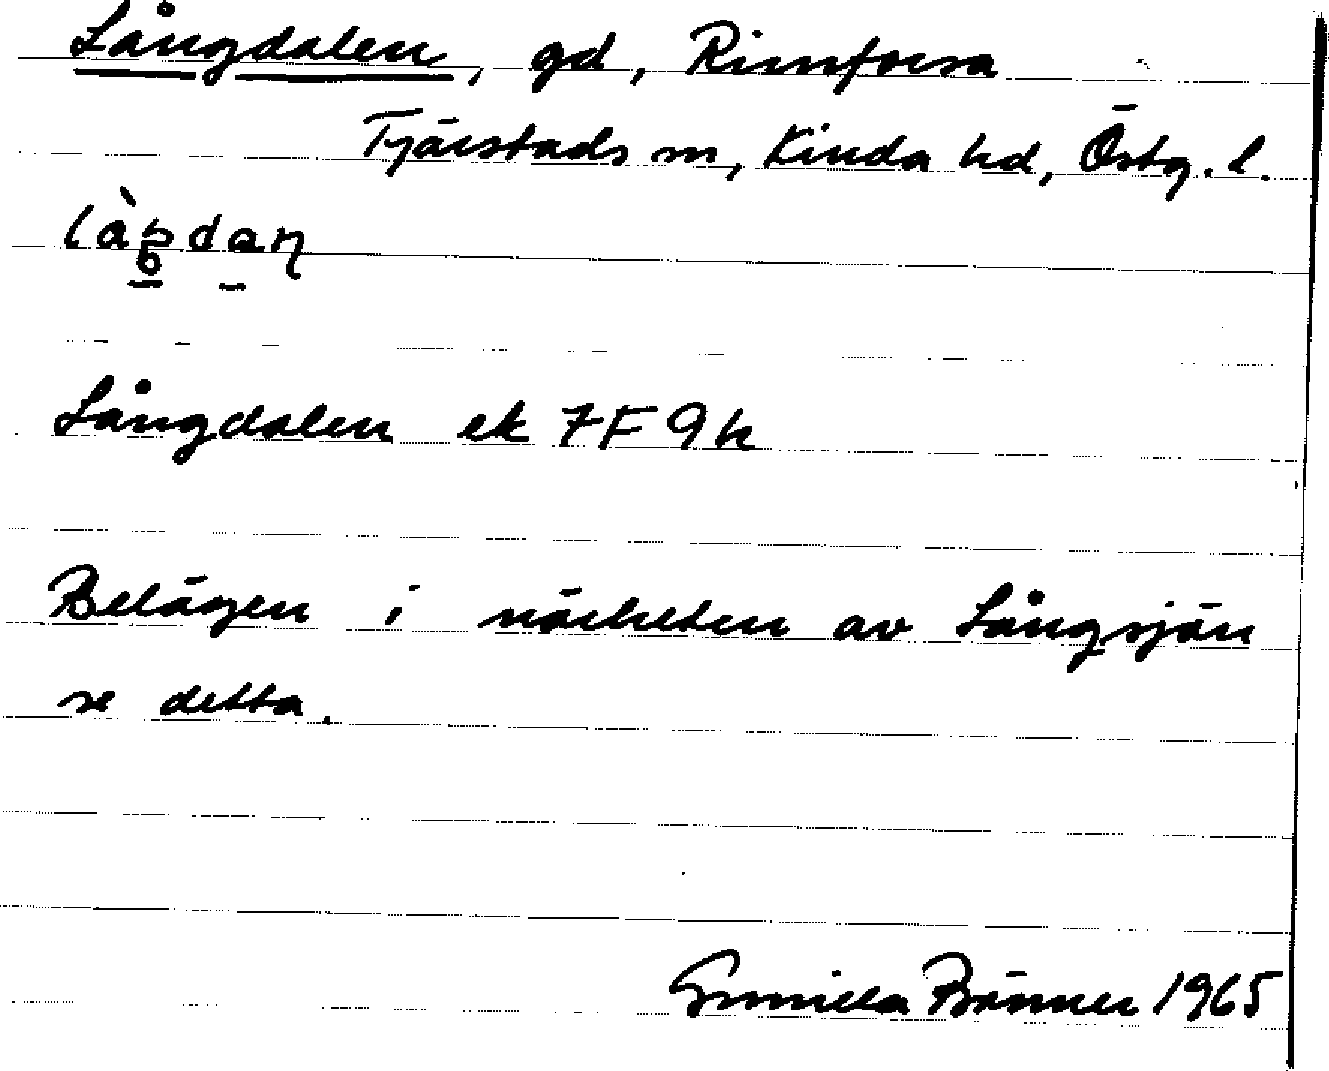 Långdalen, gd, Rimforsa
Tjärstads sn, Kinda hd, Östg. l.
Långdalen ek 7F 9h
Belägen i närheten av Långsjön
se detta.
Gunilla 1965